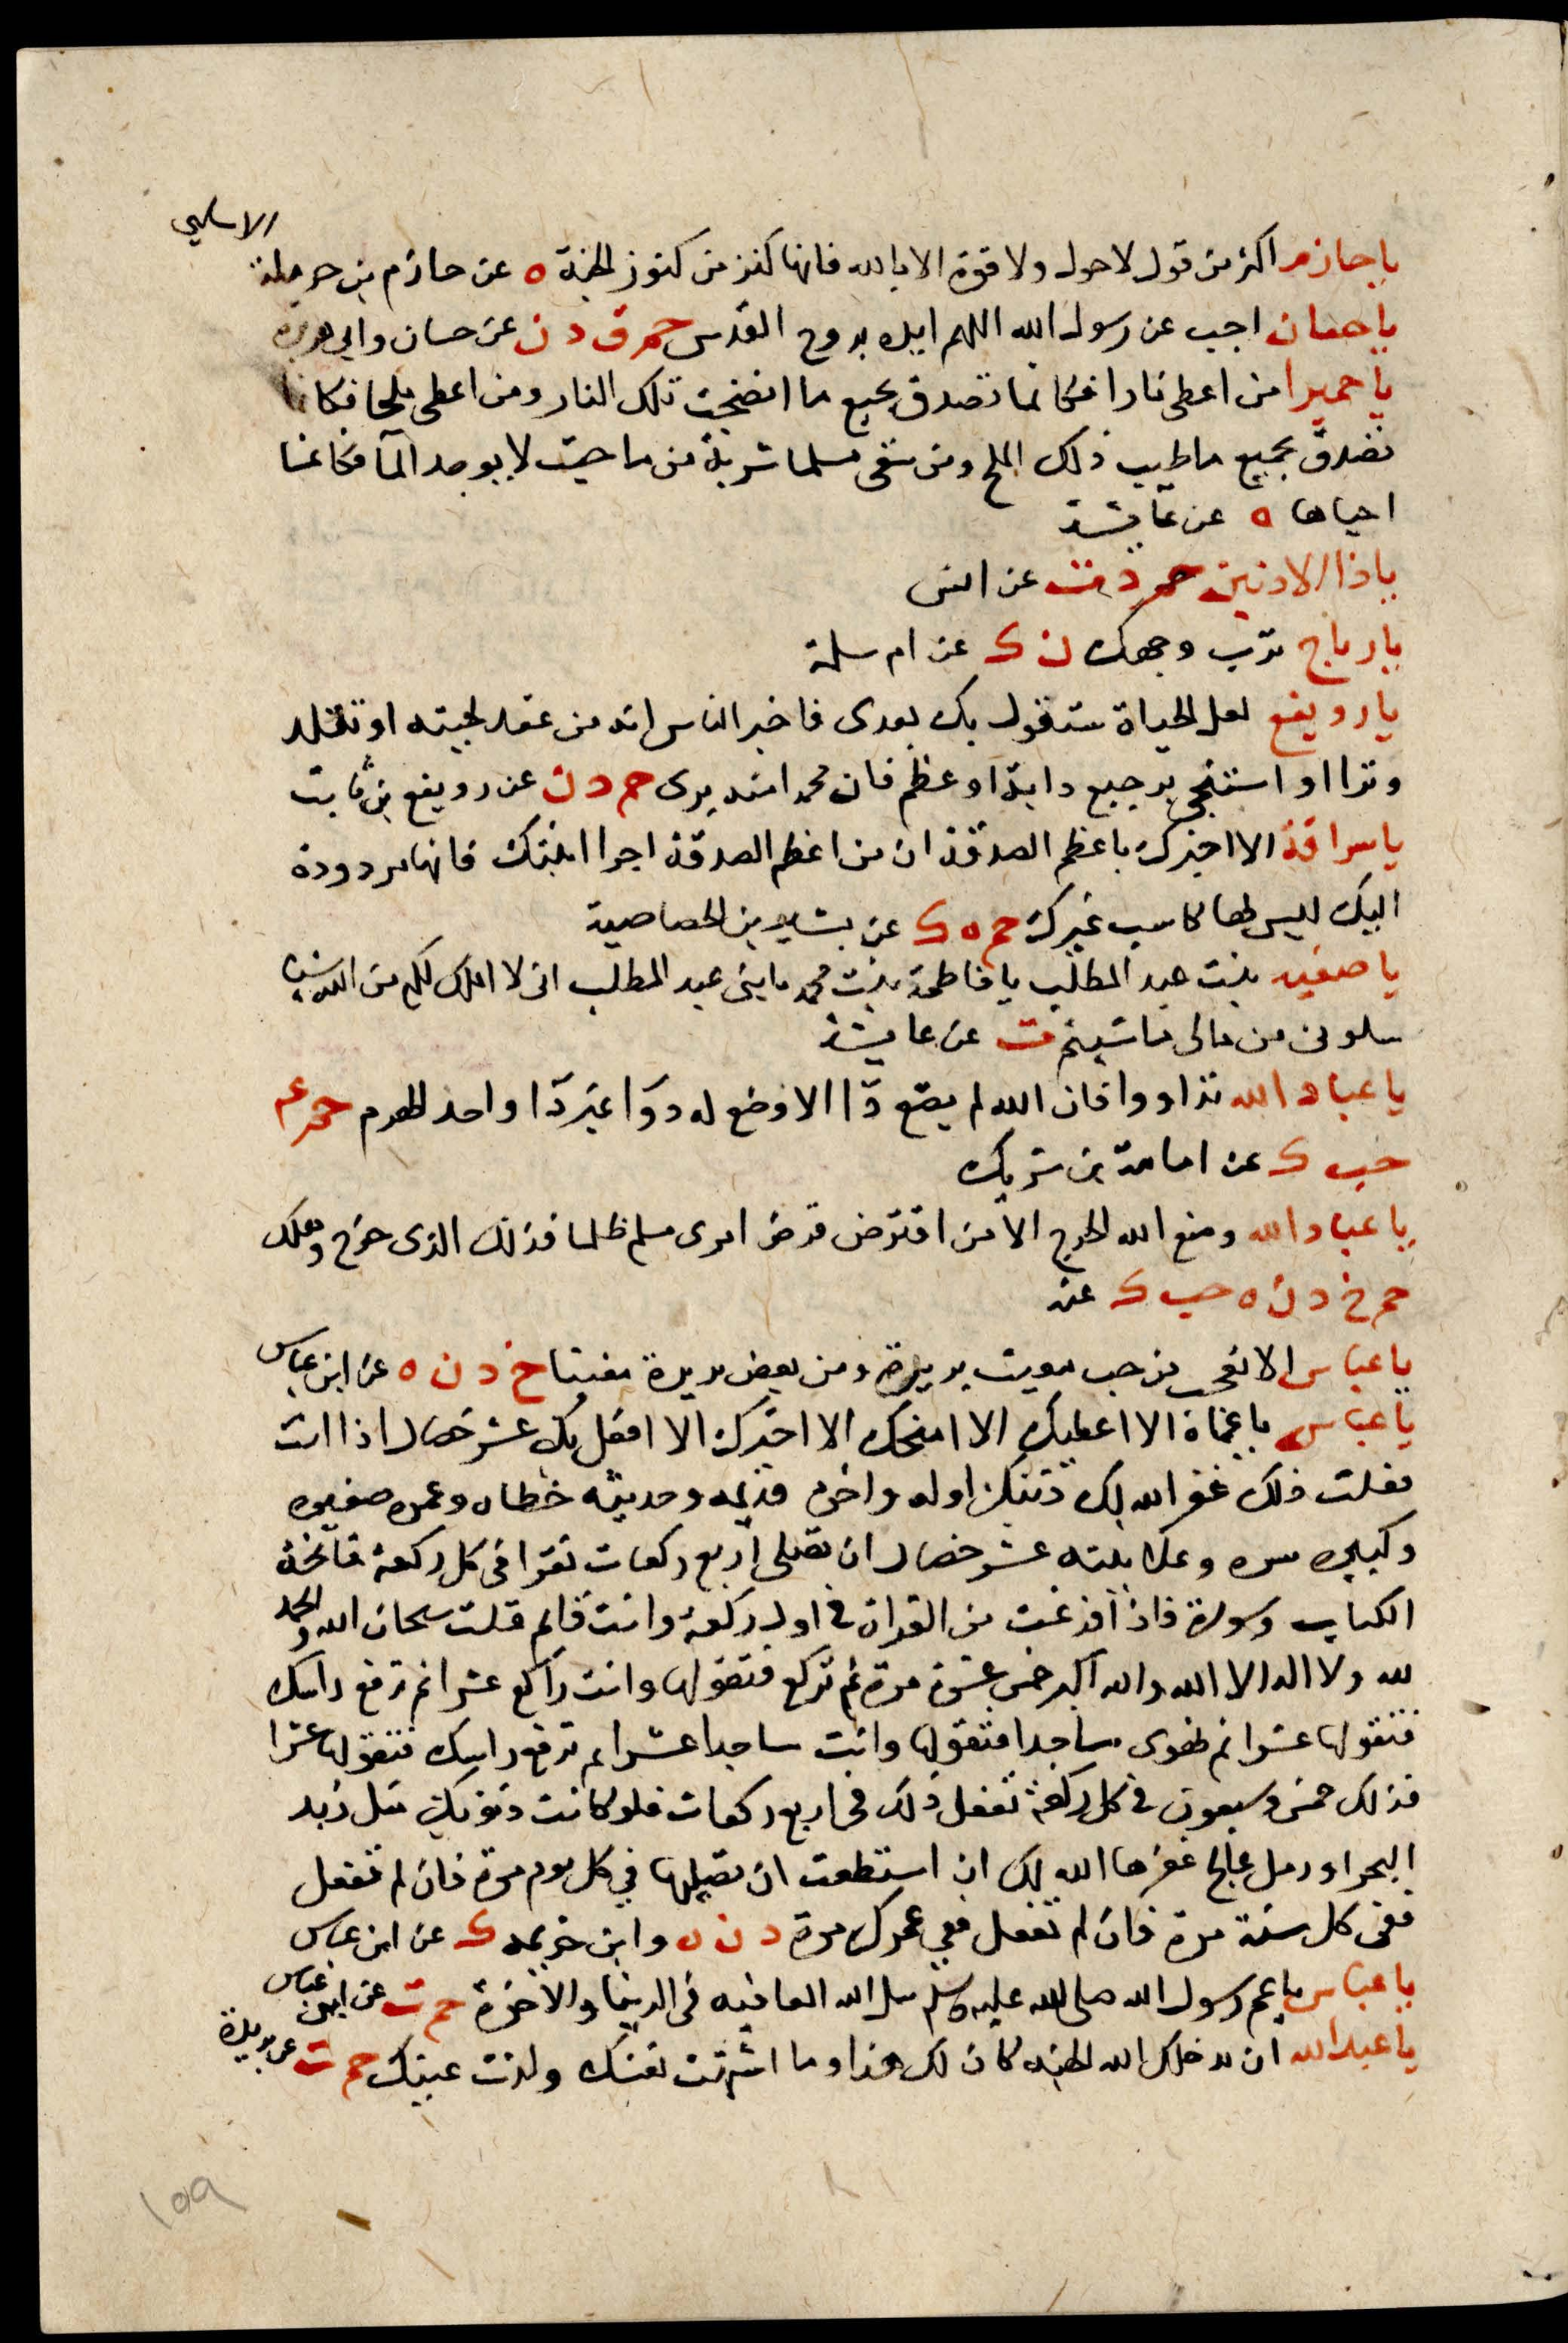 الاسلمي
يا حازم اكثر من قول لا حول ولا قوة الا بالله فانها كنز من كنوز الجنة ه عن حازم بن حرملة
يا حسان اجب عن رسول الله اللهم ايده بروح القدس حم ق د ن عن حسان وابي هريرة
يا حميرا من اعطى نارا فكانما تصدق بجميع ما انضجت تلك النار ومن اعطى ملحا فكانما
تصدق بجميع ما طيب ذلك الملح ومن سقى مسلما شربة من ما حيث لا يوجد المآ فكانما
احياها ه عن عايشة
يا ذا الاذنين حم د ت عن انس
يا رباح ترب وجهك ن ك عن ام سلمة
يا رويفع لعل الحياة ستطول بك بعدى فاخبر الناس انه من عقد لحيته او تقلد
وترا او استنجى برجيع دابة او عظم فان محمدا منه برى حم د ن عن رويفع بن ثابت
يا سراقة الا اخبرك باعظم الصدقة ان من اعظم الصدقة اجرا ابنتك فانها مردودة
اليك ليس لها كاسب غيرك حم ه ك عن بشير بن الخصاصية
يا صفيه بنت عبد المطلب يا فاطمة بنت محمد يا بنى عبد المطلب انى لا املك لكم من الله شيئا
سلونى من مالى ما شيتم ت عن عايشة
يا عباد الله تداووا فان الله لم يضع دآا الا وضع له دوآ غير دآ واحد الهرم حم عم
حب ك عن اسامة بن شريك
يا عباد الله وضع الله الحرج الا من اقترض قرض امرى مسلم ظلما فذلك الذى حرج وهلك
حم خ د ن ه حب ك عنه
يا عباس الا تعجب من حب مغيث بريرة ومن بغض بريرة مغيثا خ د ن ه عن ابن عباس
يا عباس يا عماه الا اعطيك الا امنحك الا اخبرك الا افعل بك عشر خصال اذا انت
فعلت ذلك غفر الله لك ذنبك اوله واخره قديمه وحديثه خطاه وعمده صغيره
وكبيره سره وعلانيته عشر خصال ان تصلى اربع ركعات تقرا فى كل ركعة فاتحة
الكتاب وسورة فاذا فرغت من القراة في اول ركعة وانت قايم قلت سبحان الله والحمد
لله ولا اله الا الله والله اكبر خمس عشرة مرة ثم تركع فتقولها وانت راكع عشرا ثم ترفع راسك
فتقولها عشرا ثم تهوى ساجدا فتقولها وانت ساجدا عشرا ثم ترفع راسك فتقولها عشرا
فذلك خمس وسبعون في كل ركعة تفعل ذلك فى اربع ركعات فلو كانت ذنوبك مثل زبد
البحر او رمل عالج غفرها الله لك ان استطعت ان تصليها في كل يوم مرة فان لم تفعل
ففى كل سنة مرة فان لم تفعل ففي عمرك مرة د ن ه وابن خزيمه ك عن ابن عباس
يا عباس يا عم رسول الله صلى الله عليه وسلم سل الله العافيه فى الدنيا والاخرة حم ت عن ابن عباس
يا عبد الله ان يدخلك الله الجنه كان لك هذا وما اشتهت نفسك ولذت عينك حم ت عن بريدة
١٥٩